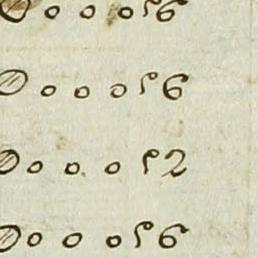 0 0 0 0 56
0 0 0 0 56
0 0 0 0 52
0 0 0 0 56